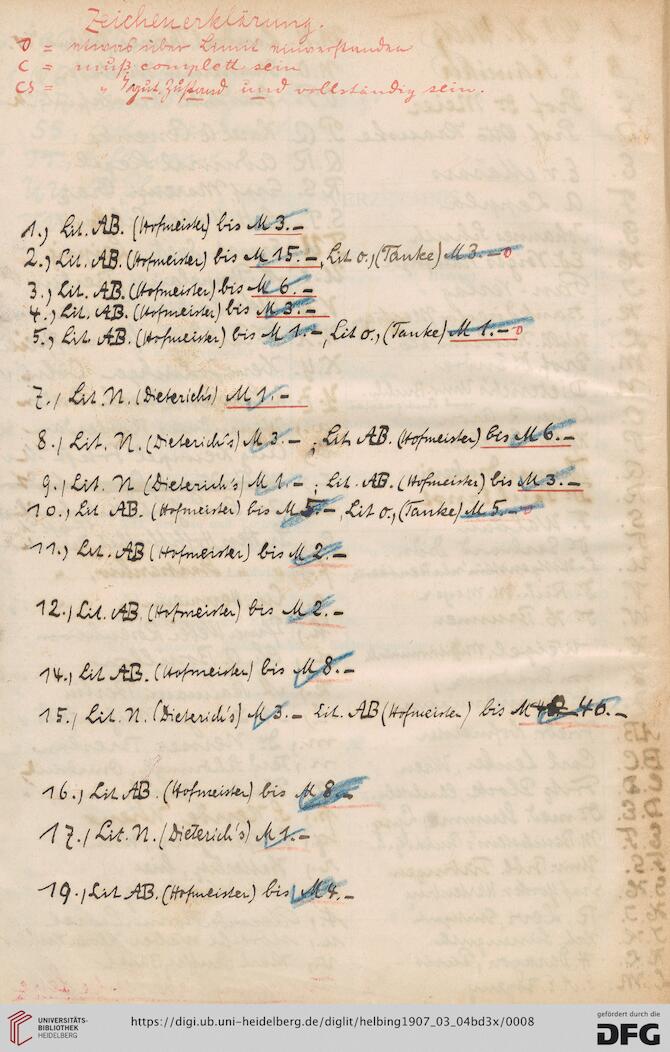 Zeichenerklärung.
o = etwas über Limit einverstanden
C = muß complett sein
CS = " gut. Zustand und vollständig sein.
1., Lit. AB. (Hofmeister) bis M 3.–
2., Lit. AB. (Hofmeister) bis M 15.–, Lit o., (Tanke) M 3.– o
3., Lit. AB. (Hofmeister) bis M 6.–
4., Lit. AB. (Hofmeister) bis M 3.–
5., Lit. AB. (Hofmeister) bis M 1.–, Lit o., (Tanke) M 1.– o
7., Lit. N. (Dieterich's) M 1.–
8., Lit. N. (Dieterich's) M 3.– ; Lit. AB. (Hofmeister) bis M 6.–
9., Lit. N (Dieterich's) M 1.– ; Lit. AB. (Hofmeister) bis M 3.–
10., Lit AB. (Hofmeister) bis M 5.–, Lit o., (Tanke) M 5.– o
11., Lit. AB (Hofmeister) bis M 2.–
12., Lit. AB. (Hofmeister) bis M 2.–
14., Lit AB. (Hofmeister) bis M 8.–
15., Lit. N. (Dieterich's) M 3.– Lit. AB (Hofmeister) bis M 46.–
16., Lit AB. (Hofmeister) bis M 8.–
17., Lit. N. (Dieterich's) M 1.–
19., Lit AB. (Hofmeister) bis M 4.–
UNIVERSITÄTS-
BIBLIOTHEK
HEIDELBERG
https://digi.ub.uni-heidelberg.de/diglit/helbing1907_03_04bd3x/0008
gefördert durch die
DFG